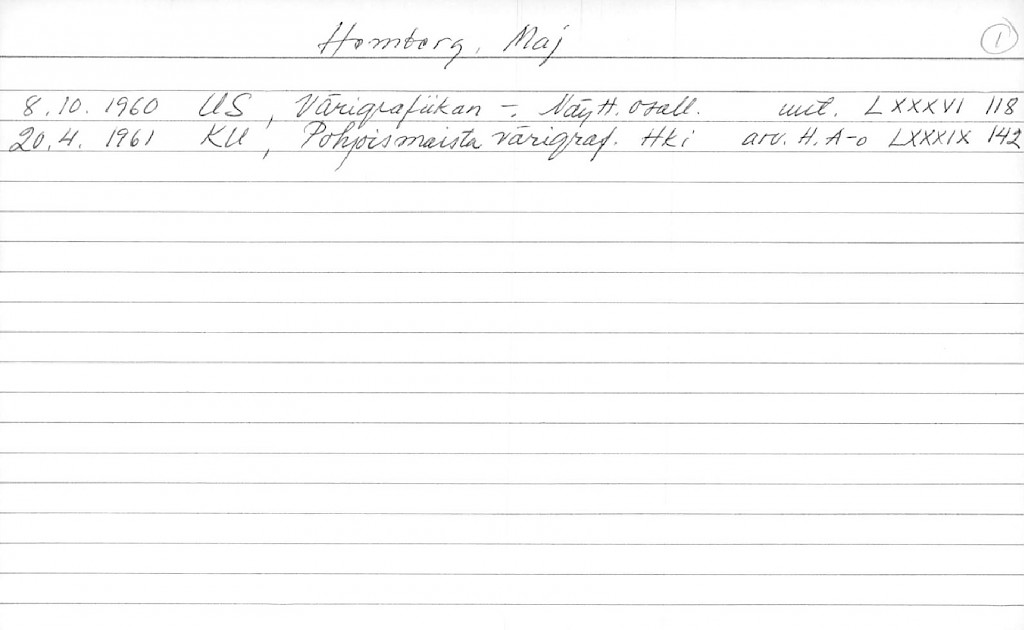 Homborg, Maj ①
8.10. 1960 US, Värigrafiikan - Näytt. osall. uut. LXXXVI 118
20.4. 1961 KU, Pohjoismaista värigraf. Hki arv. H. A-o LXXXIX 142